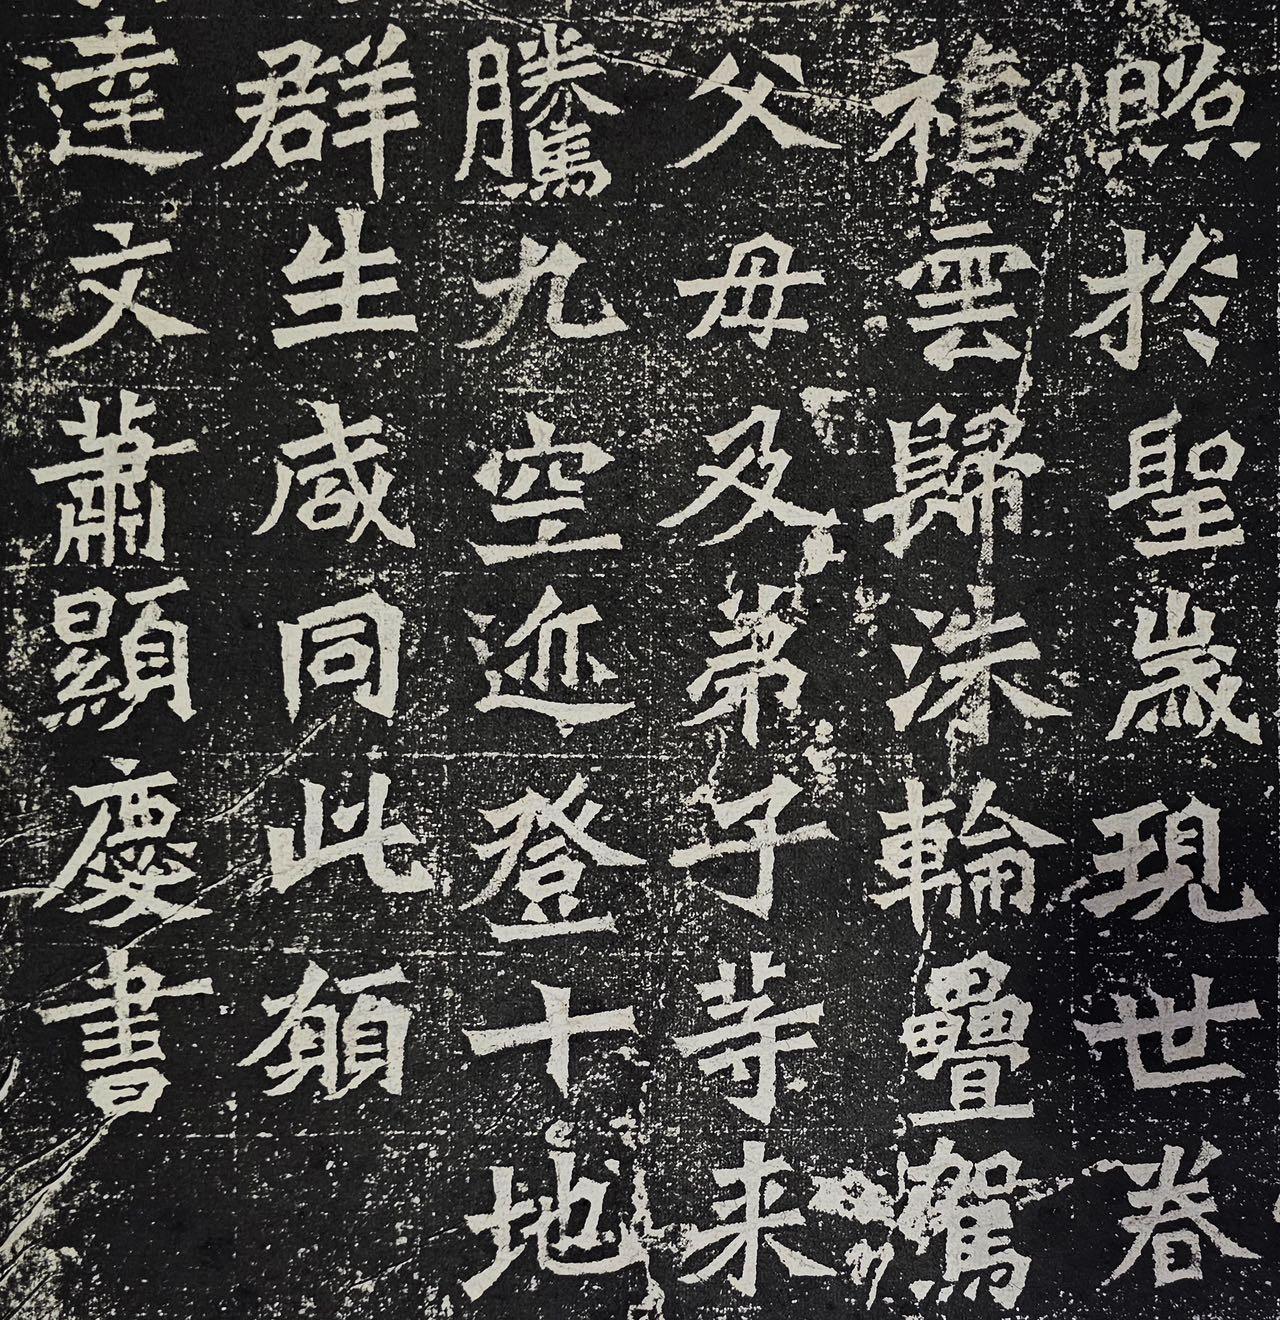 照於聖歲現世眷
福雲歸洙輪疊駕
父母及弟子等来
騰九空迹登十地
群生咸同此願
達文蕭顯慶書